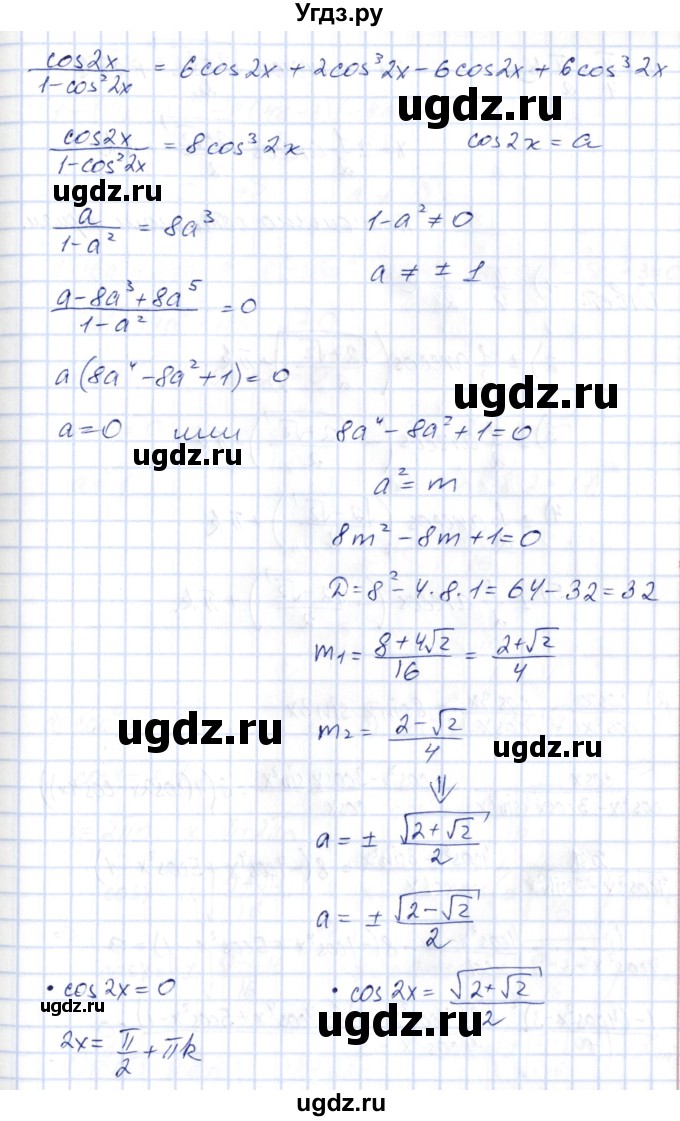 Угдз.ру
cos2x / (1-cos²2x) = 6cos2x + 2cos³2x - 6cos2x + 6cos³2x
ugdz.ru
cos2x / (1-cos²2x) = 8cos³2x     cos2x = a
ugdz.ru
a / (1-a²) = 8a³     1-a² ≠ 0
a ≠ ± 1
(a-8a³+8a⁵) / (1-a²) = 0
a(8a⁴-8a²+1)=0
ugdz.ru
a=0 или 8a⁴-8a²+1=0
ugdz.ru
a² = m
8m²-8m+1=0
D=8²-4·8·1=64-32=32
m₁ = (8+4√2) / 16 = (2+√2) / 4
m₂ = (2-√2) / 4
ugdz.ru
ugdz.ru
⇓
a = ± √(2+√2) / 2
a = ± √(2-√2) / 2
• cos2x=0     • cos2x = √(2+√2) / 2
ugdz.ru
ugdz.ru
2x = π/2 + πk
ugdz.ru